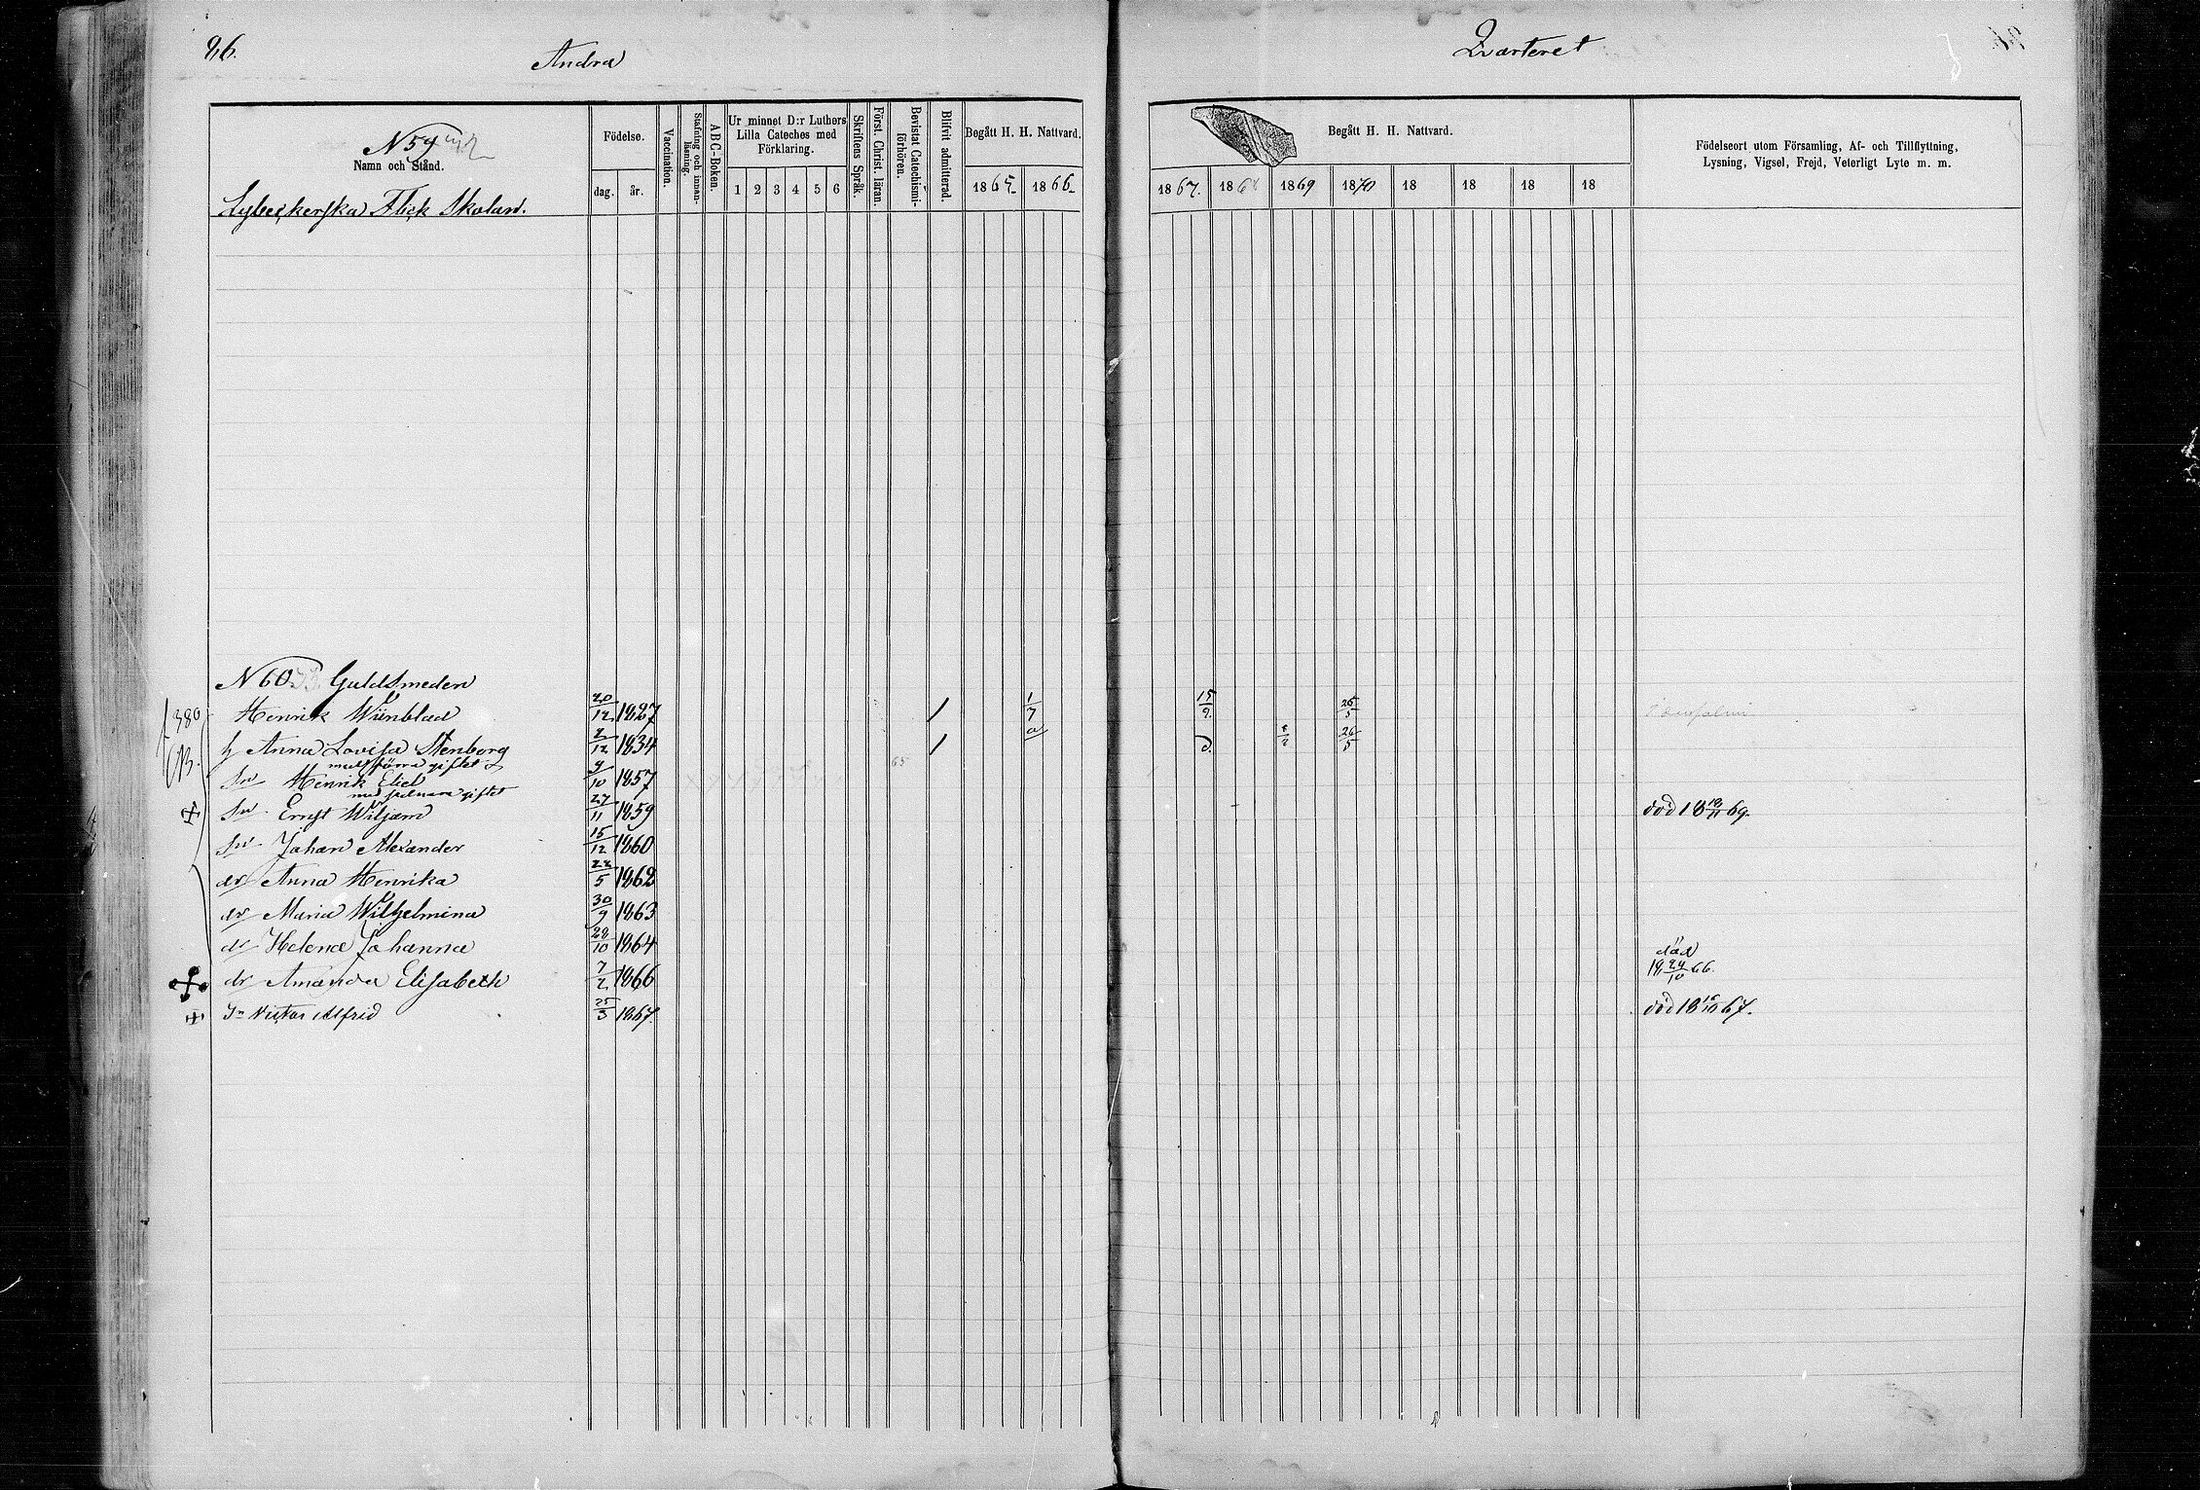 86.
Andra
Qvarteret
N 59
Namn och Stånd.
Födelse.
dag. år.
Vaccination.
Stafning och innan-läsning.
ABC-Boken.
Ur minnet D:r Luthers Lilla Cateches med Förklaring.
1 2 3 4 5 6
Skriftens Språk.
Först. Christ. läran.
Bevistat Catechismi-förhören.
Blifvit admitterad.
Begått H. H. Nattvard.
1865. 1866.
Begått H. H. Nattvard.
1867. 1868 1869 1870 18 18 18 18
Födelseort utom Församling, Af- och Tillflyttning,
Lysning, Vigsel, Frejd, Veterligt Lyte m. m.
Lybeckerska Flick Skolan.
N 60. Guldsmeden
380 Henrik Wiinblad 20/12 1827 1/7 15/9 25/5
h Anna Lovisa Stenborg 2/12 1834 d. 26/5
Sn Henrik Eliel 9/10 1857
Sn Ernst Wiljam 27/11 1859 död 18 18/11 69.
Sn Johan Alexander 15/12 1860
dr Anna Henrika 22/5 1862
dr Maria Wilhelmina 30/9 1863
dr Helena Johanna 28/10 1864
dr Amanda Elisabeth 7/2 1866 död 18 24/10 66.
Sn Victor Alfrid 25/3 1867. död 18 15/10 67.